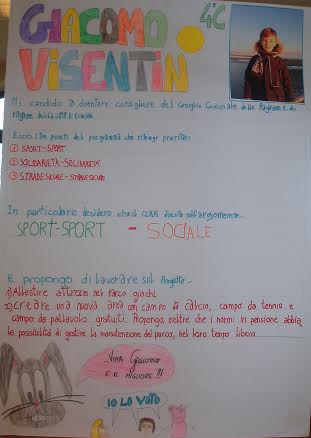 GIACOMO 4°C
VISENTIN
Mi candido a diventare consigliere del Consiglio Comunale delle Ragazze e dei
Ragazzi della città di
Ecco i tre punti del programma che ritengo prioritari
① SPORT-SPORT
② SOLIDARIETÀ-SOLIDARIETÀ
③ STRADE SICURE-STRADE SICURE
In particolare desidero che il CCRR discuta sull'argomento
SPORT-SPORT - SOCIALE
E propongo di lavorare sul progetto
1) Allestire attrezzi nel parco giochi
2) creare una nuova area con campo da calcio, campo da tennis e
campo da pallavolo gratuiti. Propongo, inoltre che i nonni in pensione abbia
la possibilità di gestire la manutenzione del parco, nel loro tempo libero.
VOTA Giacomo
E IL MIGLIORE!!!
IO LO VOTO